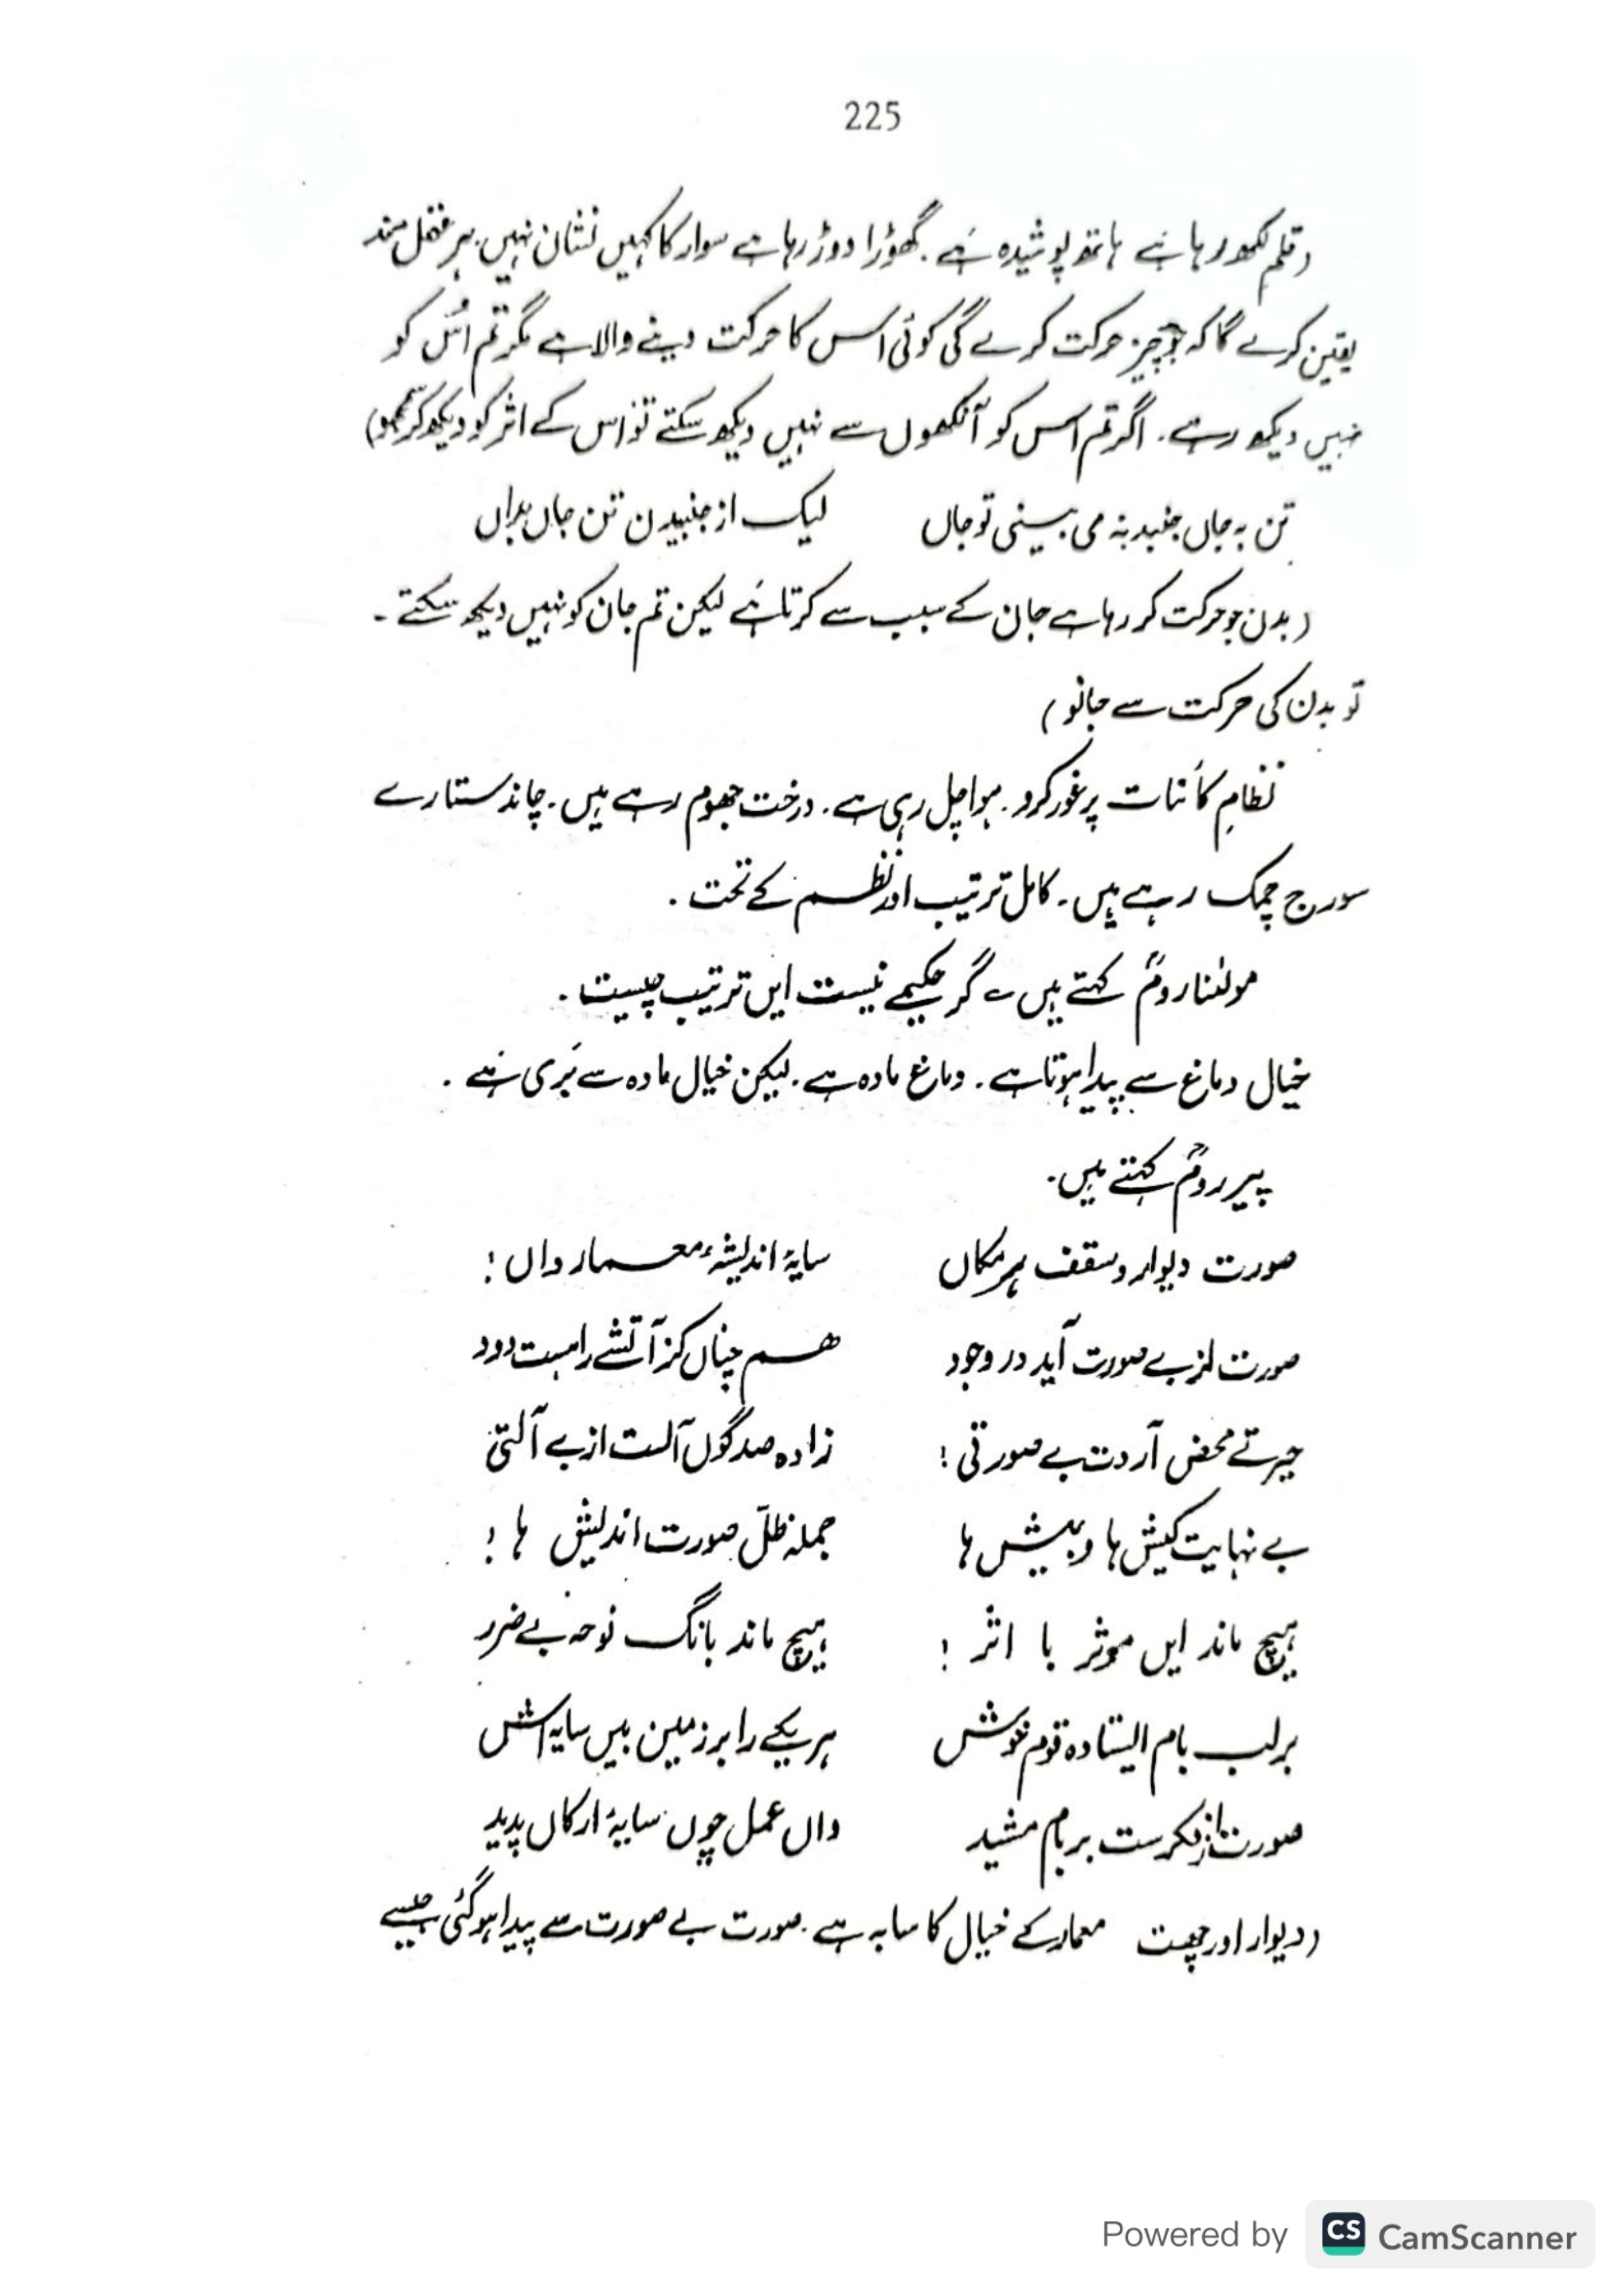 225
(قلم لکھ رہا ہے ہاتھ پوشیدہ ہے۔ گھوڑا دوڑ رہا ہے سوار کا کہیں نشان نہیں۔ ہر عقل مند
یقین کرے گا کہ جو چیز حرکت کرے گی کوئی اس کا حرکت دینے والا ہے مگر تم اُس کو
نہیں دیکھ رہے۔ اگر تم اس کو آنکھوں سے نہیں دیکھ سکتے تو اس کے اثر کو دیکھ کر سمجھو)
تن بہ جاں جنبد نہ می بینی تو جاں لیک از جنبیدن تن جاں بداں
(بدن جو حرکت کر رہا ہے جان کے سبب سے کرتا ہے لیکن تم جان کو نہیں دیکھ سکتے۔
تو بدن کی حرکت سے جانو)
نظامِ کائنات پر غور کرو۔ ہوا چل رہی ہے۔ درخت جھوم رہے ہیں۔ چاند ستارے
سورج چمک رہے ہیں۔ کامل ترتیب اور نظم کے تحت۔
مولٰنا رومؒ کہتے ہیں ؎ گر حکیمے نیست ایں ترتیب چیست۔
خیال دماغ سے پیدا ہوتا ہے۔ دماغ مادہ ہے۔ لیکن خیال مادہ سے بَری ہے۔
پیر رومؒ کہتے ہیں۔
صورت دیوار و سقف ہر مکاں سایۂ اندیشۂ معمار داں!
صورت از بے صورت آید در وجود ہم چناں کز آتشے راہست دود
حیرتے محض آردت بے صورتی! زادہ صد گوں آلت از بے آلتی
بے نہایت کیش ہا و بیش ہا جملہ ظلّ صورت اندیش ہا!
ہیچ ماند ایں موثر با اثر! ہیچ ماند بانگ نوحہ بے ضرر
بر لب بام ایستادہ قوم خوش ہر یکے را بر زمین بیں سایہ اش
صورت از فکرست بر بام مشید واں عمل چوں سایۂ ارکاں پدید
(دیوار اور چھت معمار کے خیال کا سایہ ہے۔ صورت بے صورت سے پیدا ہو گئی جیسے
Powered by CS CamScanner